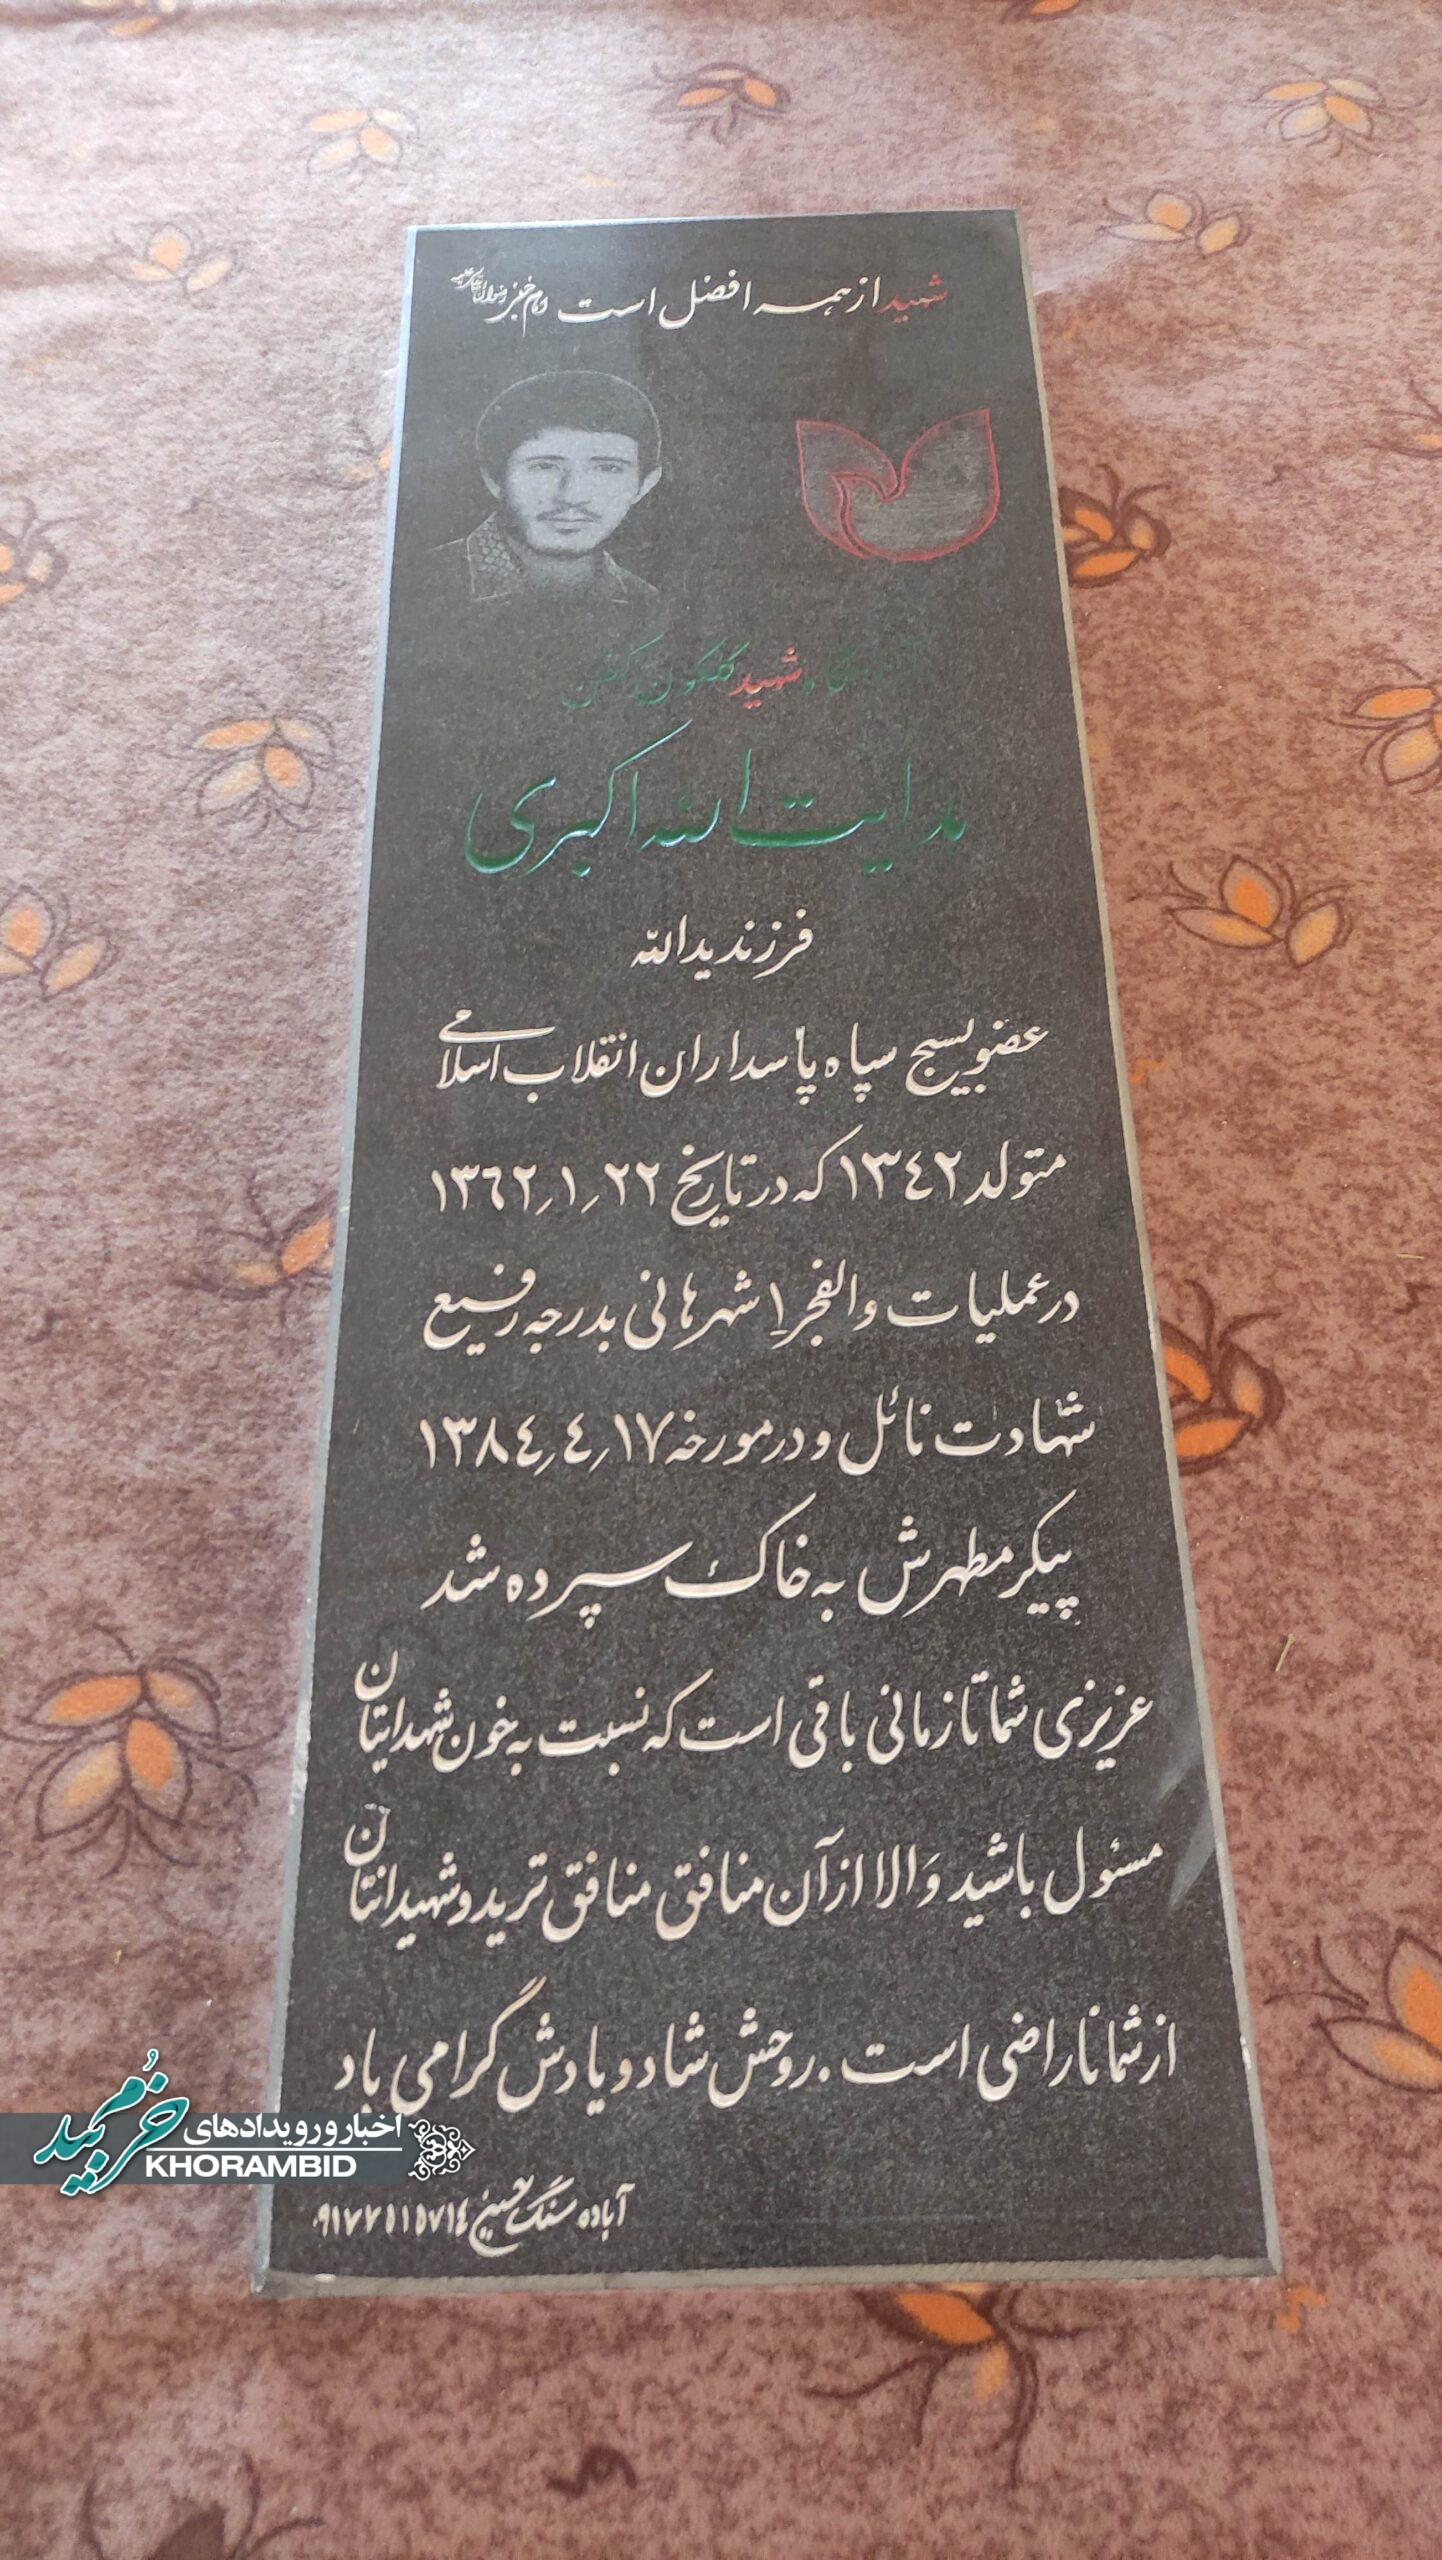 شهید از همه افضل است امام خمینی رضوان الله تعالی علیه
آرامگاه شهید گلگون کفن
هدایت الله اکبری
فرزند یدالله
عضو بسیج سپاه پاسداران انقلاب اسلامی
متولد ۱۳٤۲ که در تاریخ ۲۲٫۱٫۱۳٦۲
در عملیات والفجر ۱ شهرهانی بدرجه رفیع
شهادت نائل و در مورخه ۱۷٫٤٫۱۳۸٤
پیکر مطهرش به خاک سپرده شد
عزیزی شما تا زمانی باقی است که نسبت به خون شهدایتان
مسئول باشید وَالا از آن منافق منافق ترید و شهیدانتان
از شما ناراضی است . روحش شاد و یادش گرامی باد
آباده سنگ حسینی ۰۹۱۷۷۵۱۵۷۱٤
اخبار و رویدادهای
خرمبید
KHORAMBID